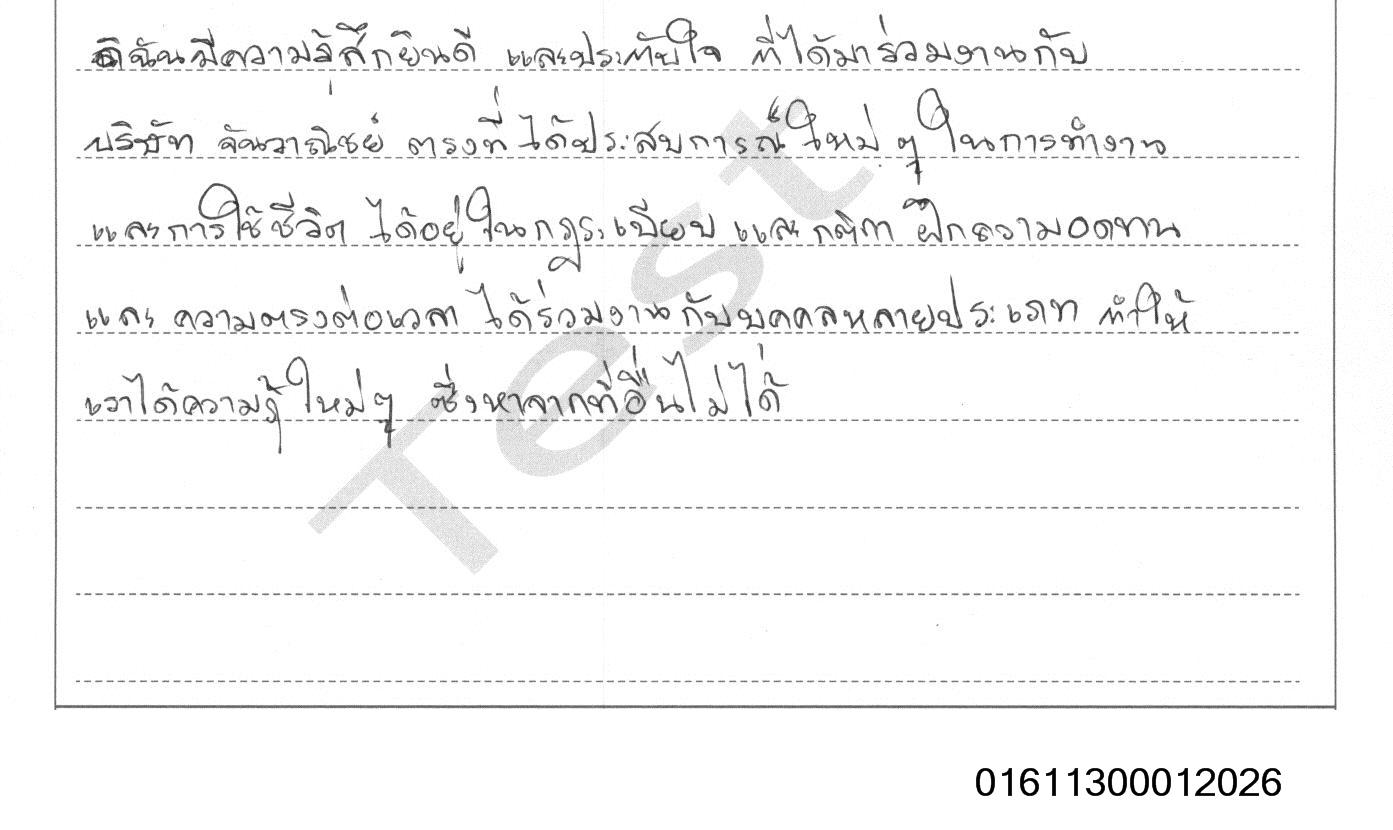 ดิฉันมีความรู้สึกยินดี และประทับใจ ที่ได้มาร่วมงานกับ
บริษัท จันวาณิชย์ ตรงที่ได้ประสบการณ์ใหม่ ๆ ในการทำงาน
และการใช้ชีวิต ได้อยู่ในกฎระเบียบ และกติกา ฝึกความอดทน
และ ความตรงต่อเวลา ได้ร่วมงานกับบุคคลหลายประเภท ทำให้
เราได้ความรู้ใหม่ๆ ซึ่งหาจากที่อื่นไม่ได้
Test
01611300012026